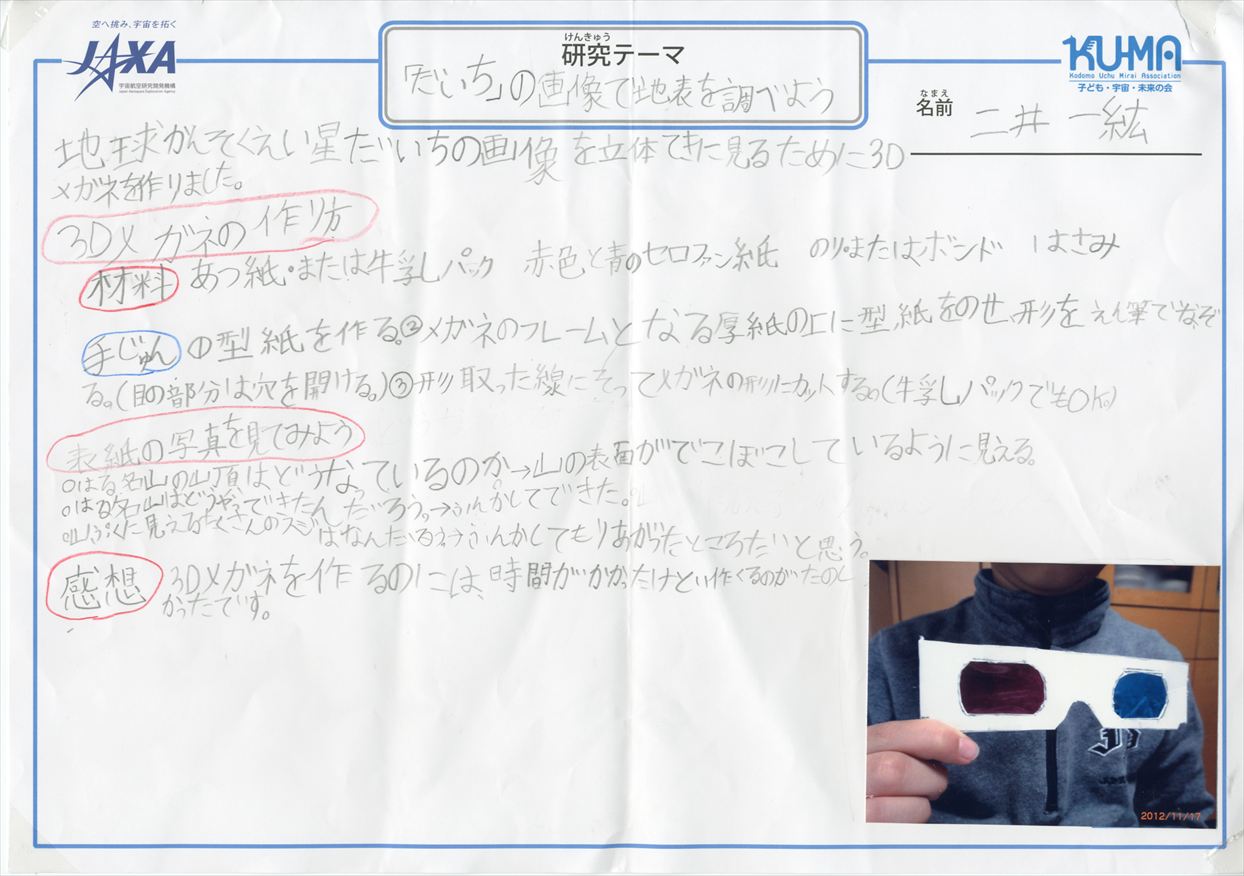 空へ挑み、宇宙を拓く
JAXA
宇宙航空研究開発機構
Japan Aerospace Exploration Agency
けんきゅう
研究テーマ
「だいち」の画像で地表を調べよう
KU-MA
Kodomo Uchu Mirai Association
子ども・宇宙・未来の会
なまえ
名前 二井 一紘
地球かんそくえい星だいちの画像を立体てきに見るために3D
メガネを作りました。
3Dメガネの作り方
材料 あつ紙・または牛乳しパック 赤色と青のセロファン紙 のり・またはボンド はさみ
手じゅん ①型紙を作る。②メガネのフレームとなる厚紙の上に型紙をのせ、形をえん筆でなぞ
る。(目の部分は穴を開ける。)③形取った線にそってメガネの形にカットする。(牛乳しパックでもOK。)
表紙の写真を見てみよう
○はる名山の山頂はどうなっているのか→山の表面がでこぼこしているように見える。
○はる名山はどうやってできたんだろう。→ふんかしてできた。
○山ぷくに見えるたくさんのスジはなんだろう→ふんかしてもりあがったところだいと思う。
感想 3Dメガネを作るのには、時間がかかったけどい作くるのがたのし
かったです。
2012/11/17